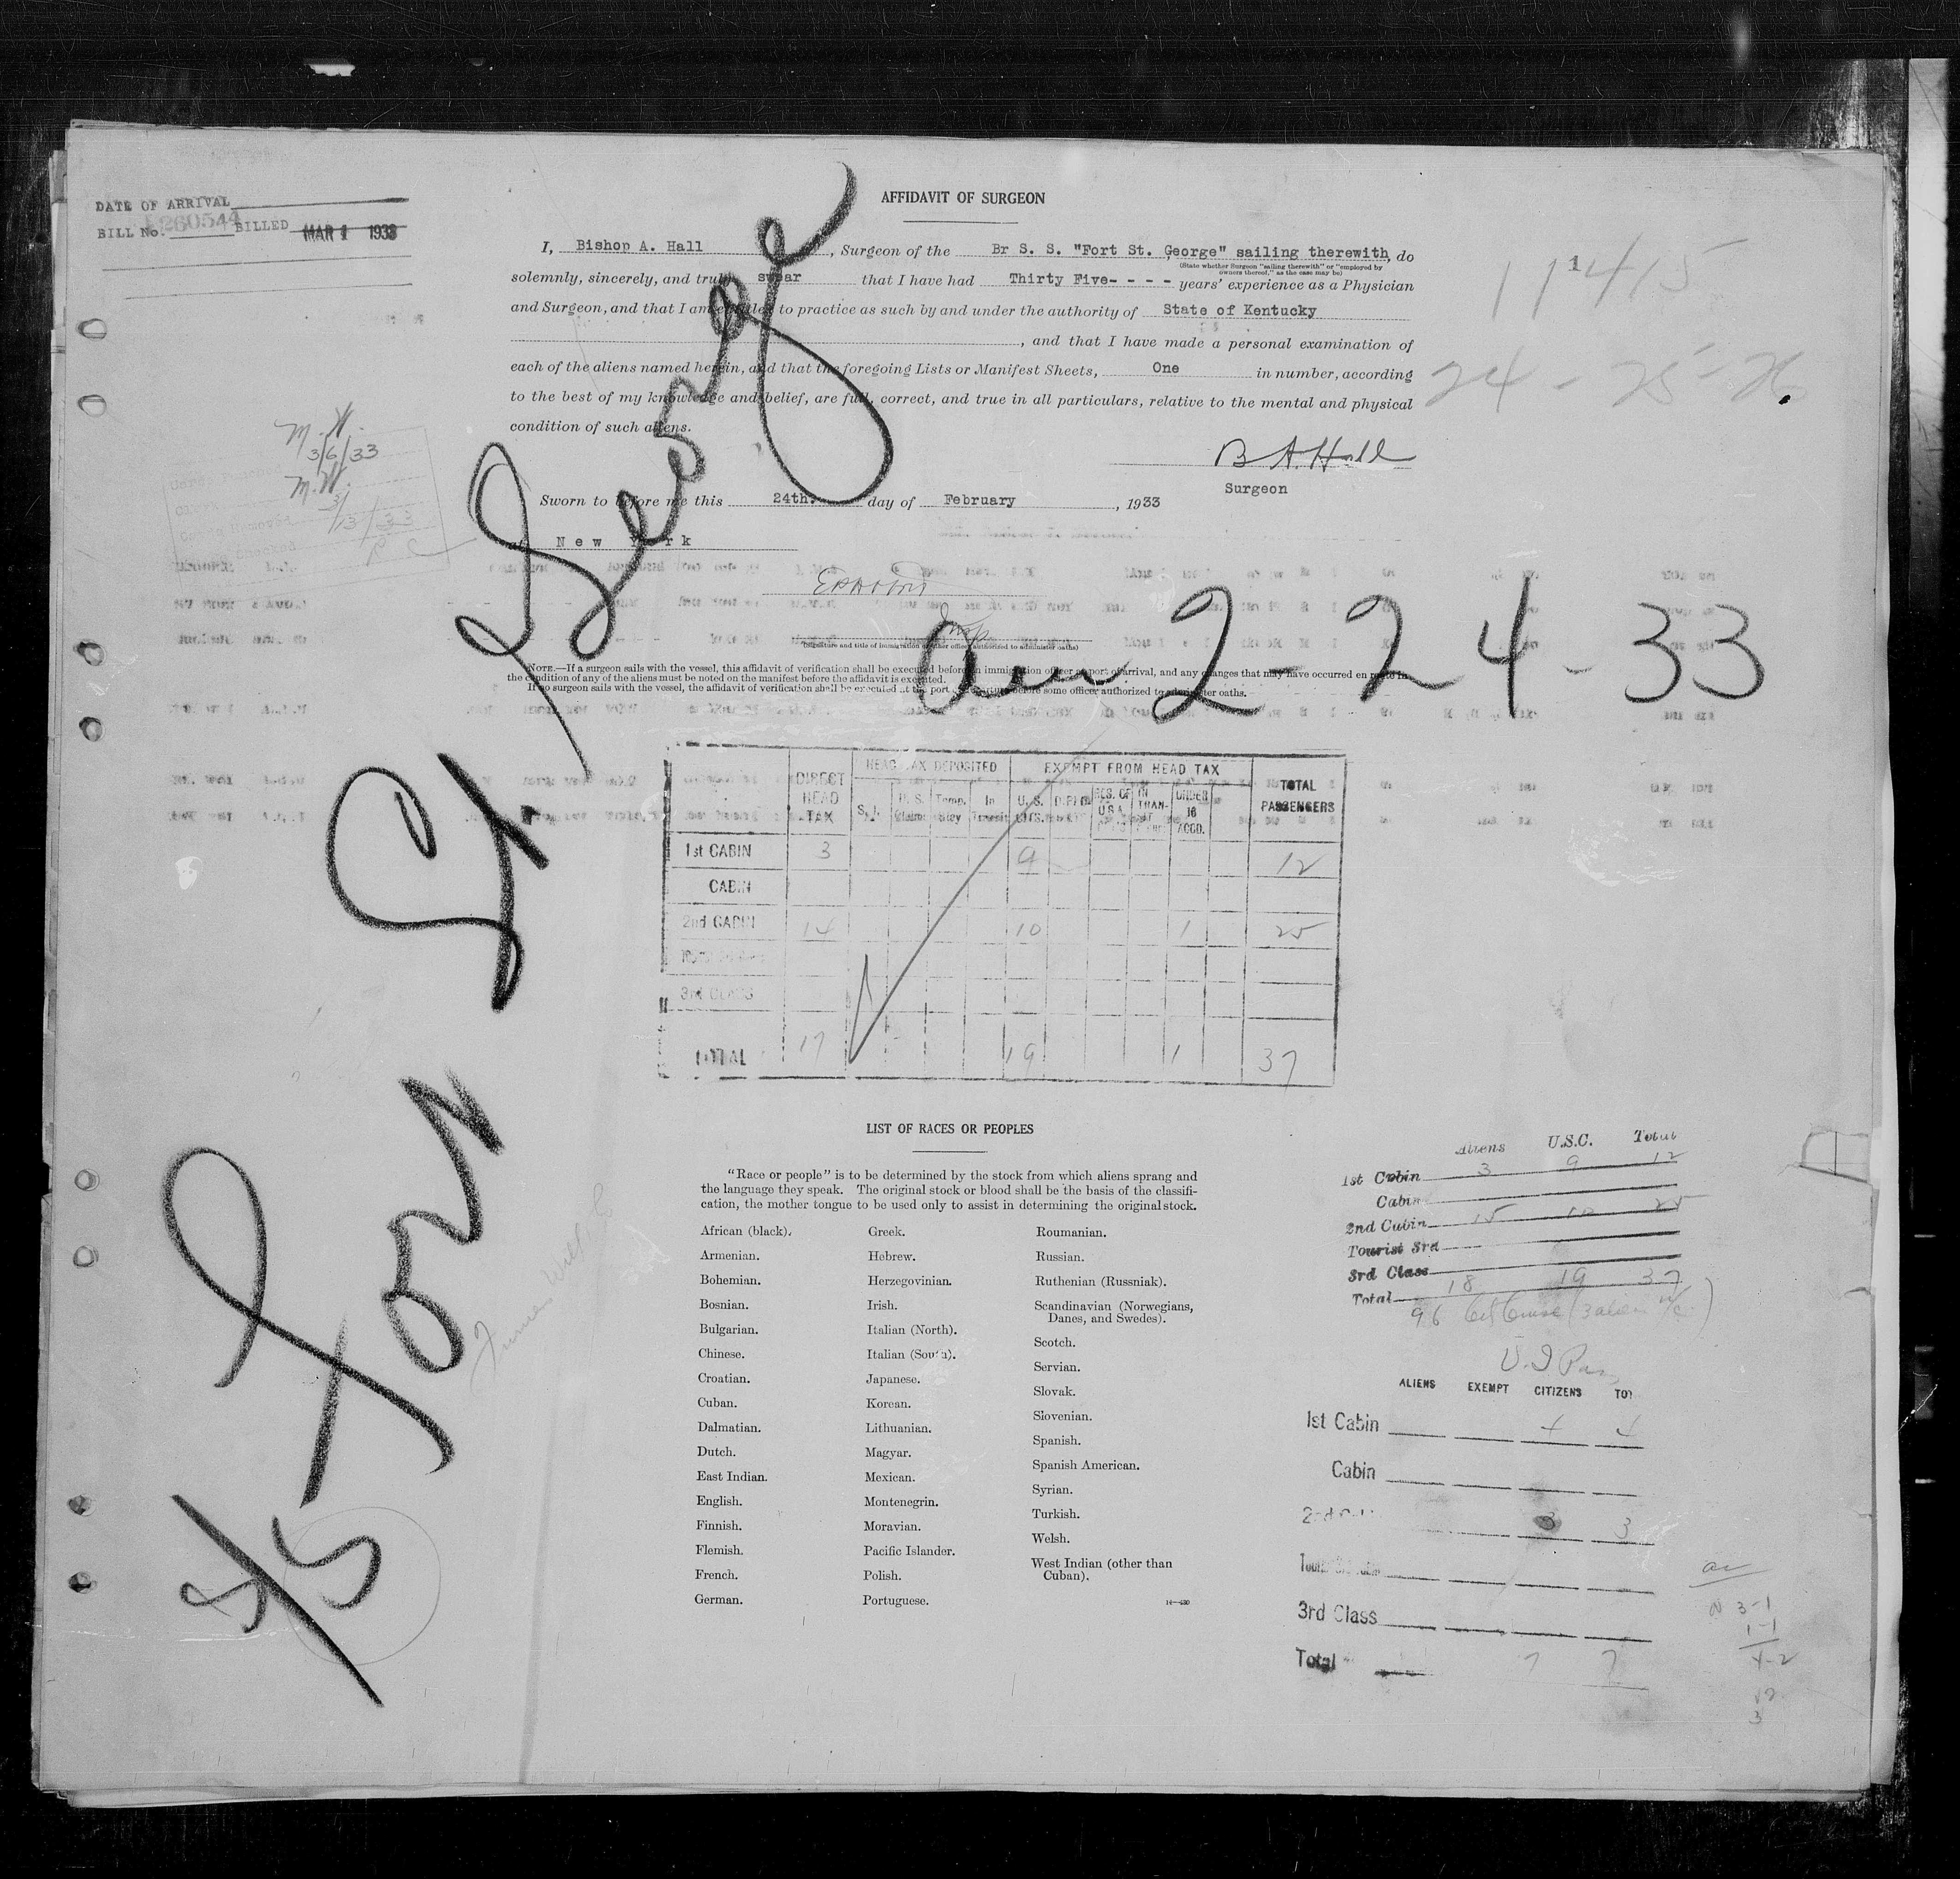 DATE OF ARRIVAL
BILL No. 260544 BILLED MAR 1 1933
AFFIDAVIT OF SURGEON
I, Bishop A. Hall, Surgeon of the Br S. S. "Fort St. George" sailing therewith, do
(State whether Surgeon "sailing therewith" or "employed by
owners thereof," as the case may be)
solemnly, sincerely, and truly swear that I have had Thirty Five- - - - years' experience as a Physician
and Surgeon, and that I am entitled to practice as such by and under the authority of State of Kentucky
, and that I have made a personal examination of
each of the aliens named herein, and that the foregoing Lists or Manifest Sheets, One in number, according
to the best of my knowledge and belief, are full, correct, and true in all particulars, relative to the mental and physical
condition of such aliens.
11415
24 - 25 - 26
B A. Hall
Surgeon
Sworn to before me this 24th. day of February, 1933
at New York
M.W.
3/6/33
M.W.
3/13/33
(Signature and title of immigration or other officer authorized to administer oaths)
NOTE.—If a surgeon sails with the vessel, this affidavit of verification shall be executed before an immigration officer at port of arrival, and any changes that may have occurred en route in
the condition of any of the aliens must be noted on the manifest before the affidavit is executed.
If no surgeon sails with the vessel, the affidavit of verification shall be executed at the port of departure before some officer authorized to administer oaths.
S/S Fort St. George
Arr 2-24-33
DIRECT HEAD TAX
HEAD TAX DEPOSITED
EXEMPT FROM HEAD TAX
TOTAL PASSENGERS
S.I. U.S. Claims Temp. In Transit U.S. CITS. RES. OF U.S.A. IN TRANSIT UNDER 16 ACCD.
1st CABIN 3 9 12
CABIN
2nd CABIN 14 10 1 25
3rd CLASS
TOTAL 17 19 1 37
LIST OF RACES OR PEOPLES
"Race or people" is to be determined by the stock from which aliens sprang and
the language they speak. The original stock or blood shall be the basis of the classifi-
cation, the mother tongue to be used only to assist in determining the original stock.
African (black).
Armenian.
Bohemian.
Bosnian.
Bulgarian.
Chinese.
Croatian.
Cuban.
Dalmatian.
Dutch.
East Indian.
English.
Finnish.
Flemish.
French.
German.
Greek.
Hebrew.
Herzegovinian.
Irish.
Italian (North).
Italian (South).
Japanese.
Korean.
Lithuanian.
Magyar.
Mexican.
Montenegrin.
Moravian.
Pacific Islander.
Polish.
Portuguese.
Roumanian.
Russian.
Ruthenian (Russniak).
Scandinavian (Norwegians,
Danes, and Swedes).
Scotch.
Servian.
Slovak.
Slovenian.
Spanish.
Spanish American.
Syrian.
Turkish.
Welsh.
West Indian (other than
Cuban).
14—430
Aliens U.S.C. Total
1st Cabin 3 9 12
Cabin
2nd Cabin 15 10 25
Tourist 3rd
3rd Class
Total 18 19 37
ALIENS EXEMPT CITIZENS TOT
1st Cabin 4 4
Cabin
3 3
3rd Class
Total 7 7
3-1
1-1
4-2